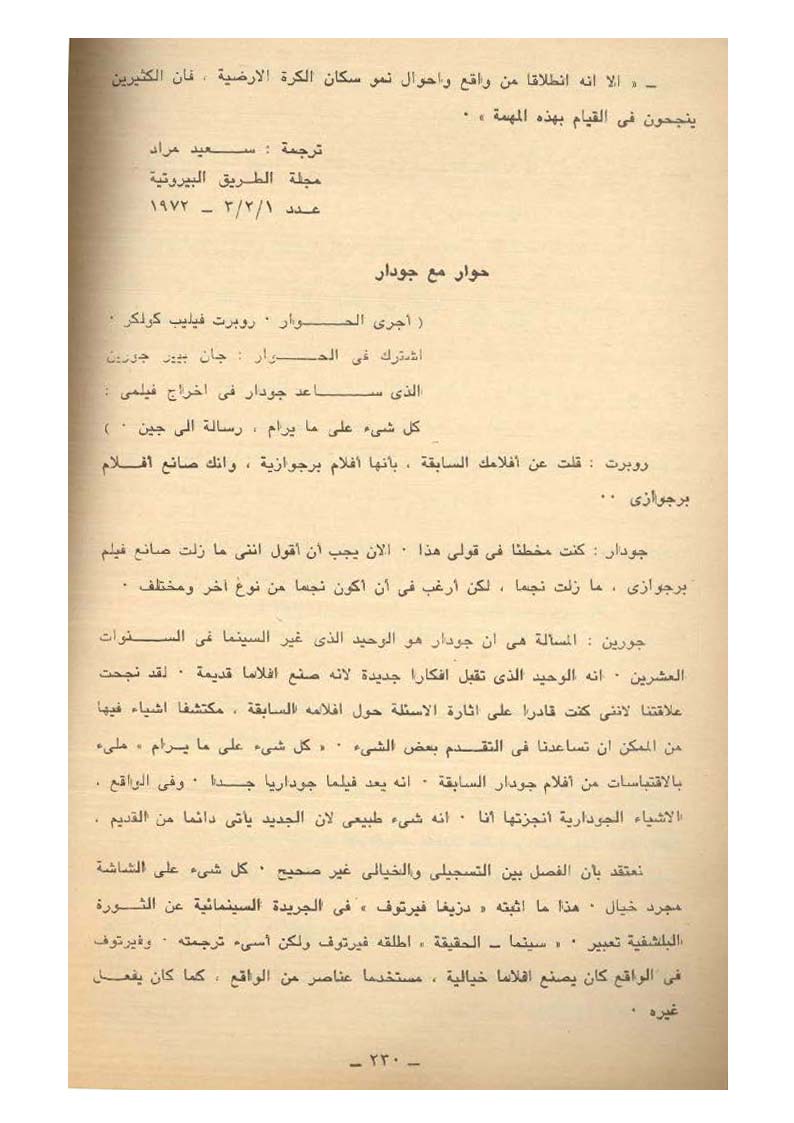 ـ « الا انه انطلاقا من واقع واحوال نمو سكان الكرة الارضية ، فان الكثيرين
ينجحون فى القيام بهذه المهمة » ٠
ترجمة : سـعيد مراد
مجلة الطـريق البيروتية
عـدد ٣/٢/١ ـ ١٩٧٢
حوار مع جودار
( أجرى الحـــوار ٠ روبرت فيليب كولكر ٠
اشترك فى الحـــوار : جان بيير جورين
الذى ســـاعد جودار فى اخراج فيلمى :
كل شىء على ما يرام ، رسالة الى جين ٠ )
روبرت : قلت عن أفلامك السابقة ، بأنها أفلام برجوازية ، وانك صانع أفـلام
برجوازى ٠٠
جودار : كنت مخطئا فى قولى هذا ٠ الان يجب أن أقول اننى ما زلت صانع فيلم
برجوازى ، ما زلت نجما ، لكن أرغب فى أن أكون نجما من نوع آخر ومختلف ٠
جورين : المسألة هى ان جودار هو الوحيد الذى غير السينما فى الســنوات
العشرين ٠ انه الوحيد الذى تقبل افكارا جديدة لانه صنع افلاما قديمة ٠ لقد نجحت
علاقتنا لاننى كنت قادرا على اثارة الاسئلة حول افلامه السابقة ، مكتشفا اشياء فيها
من الممكن ان تساعدنا فى التقـدم بعض الشىء ٠ « كل شىء على ما يـرام » ملىء
بالاقتباسات من أفلام جودار السابقة ٠ انه يعد فيلما جوداريا جـدا ٠ وفى الواقع ،
الاشياء الجودارية أنجزتها أنا ٠ انه شىء طبيعى لان الجديد يأتى دائما من القديم ،
نعتقد بأن الفصل بين التسجيلى والخيالى غير صحيح ٠ كل شىء على الشاشة
مجرد خيال ٠ هذا ما اثبته « دزيغا فيرتوف » فى الجريدة السينمائية عن الثـورة
البلشفية تعبير ٠ « سينما ـ الحقيقة » اطلقه فيرتوف ولكن أسىء ترجمته ٠ وفيرتوف
فى الواقع كان يصنع افلاما خيالية ، مستخدما عناصر من الواقع ، كما كان يفعـل
غيره ٠
ـ ٢٣٠ ـ